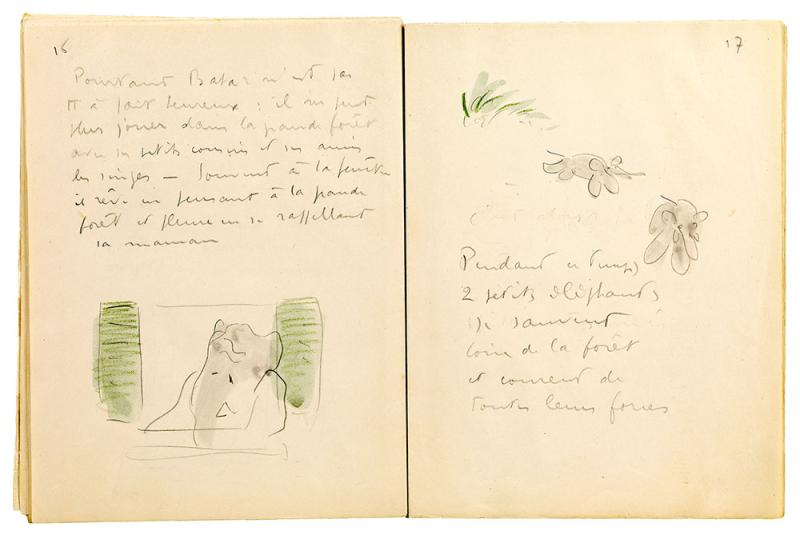 16
Pourtant Babar n'est pas
tt à fait heureux : il ne peut
plus jouer dans la grande forêt
avec ses petits cousins et ses amis
les singes — Souvent à la fenêtre
il rêve en pensant à la grande
forêt et pleure en se rappellant
sa maman
17
Pendant ce temps
2 petits éléphants
se sauvent
loin de la forêt
et courent de
toutes leurs forces